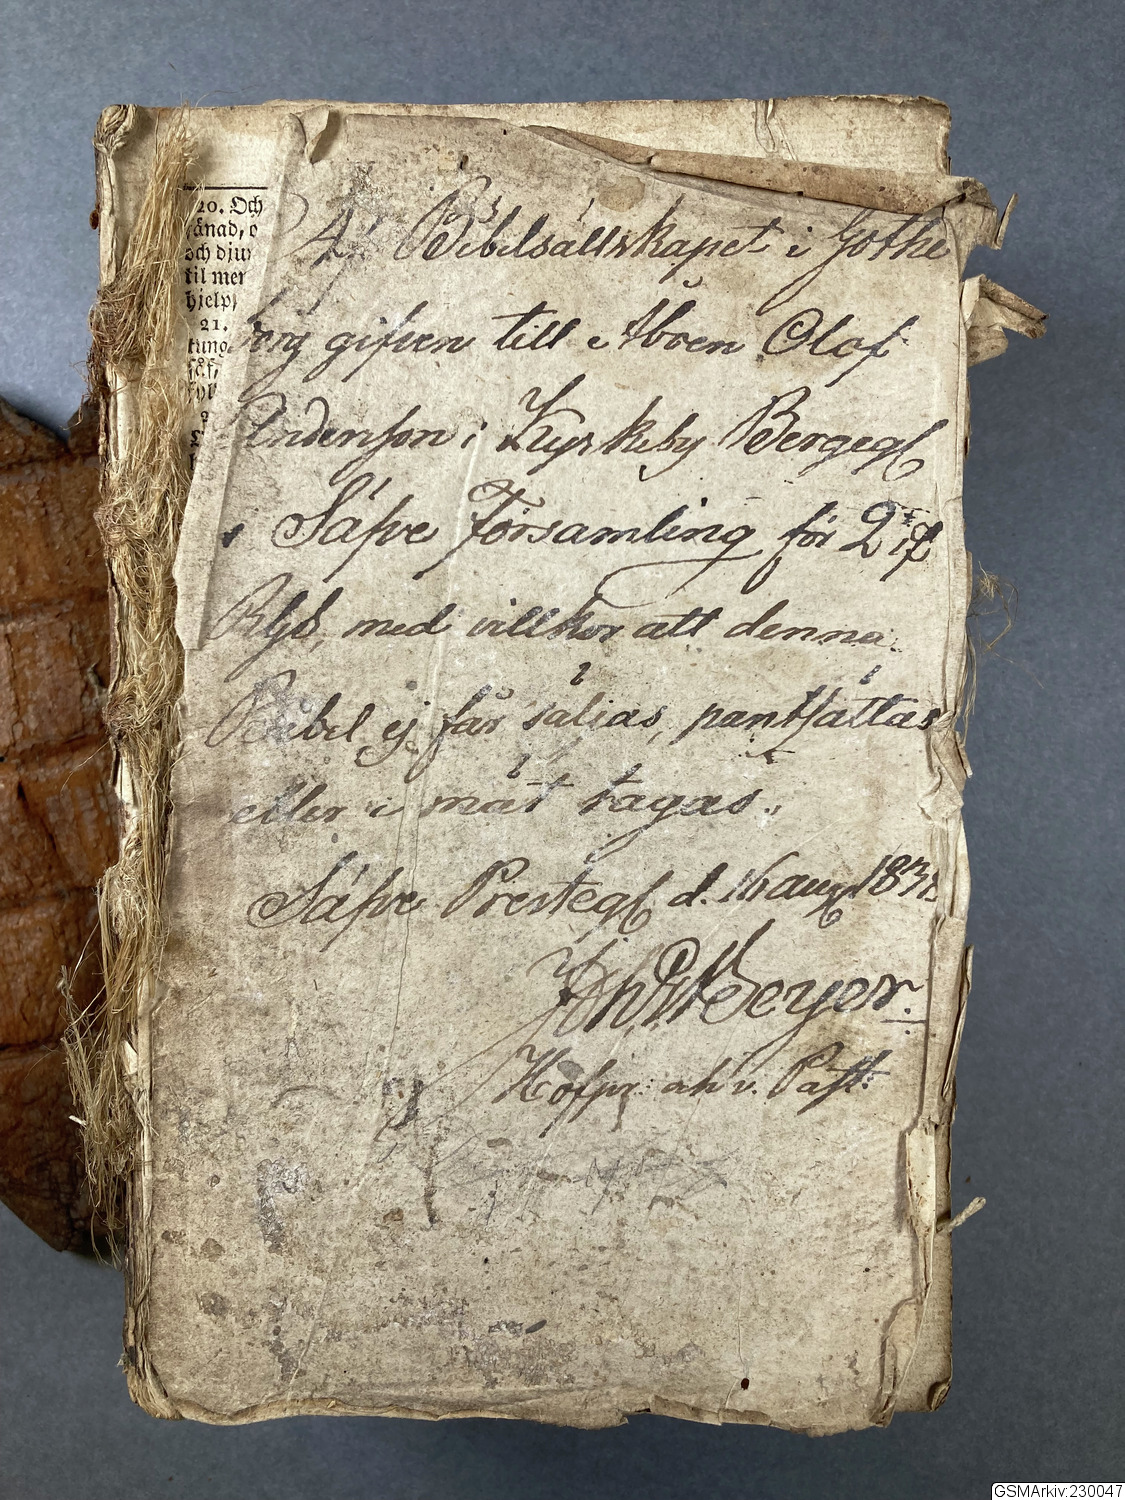 20. Och
änad, o
och djur
til mer
hjelp,
21.
tung
Af Bibelsällskapet i Gothe
borg gifven till Åboen Olof
Anderson i Kyrkeby Bergegl
i Säfve Församling för 2
RGd, med villkor att denna
Bibel ej får säljas, pantsättas
eller i mät tagas.
Säfve Prestegl d. 16 aug 183
Beyer.
Hofpr: och v. Past:
GSMArkiv:230047